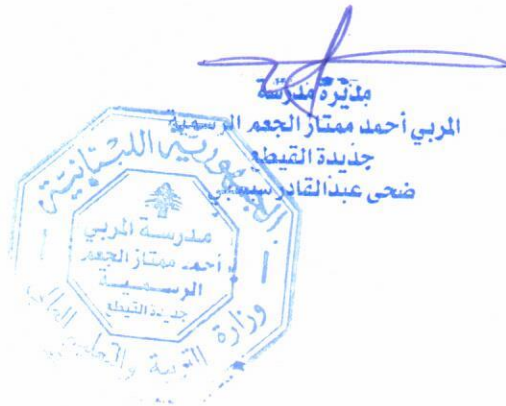 مديرة مدرسة
المربي أحمد ممتاز الجعم الرسمية
جديدة القيطع
ضحى عبدالقادر سبسبي
الجمهورية اللبنانية
مدرسة المربي
أحمد ممتاز الجعم
الرسمية
جديدة القيطع
وزارة التربية والتعليم العالي